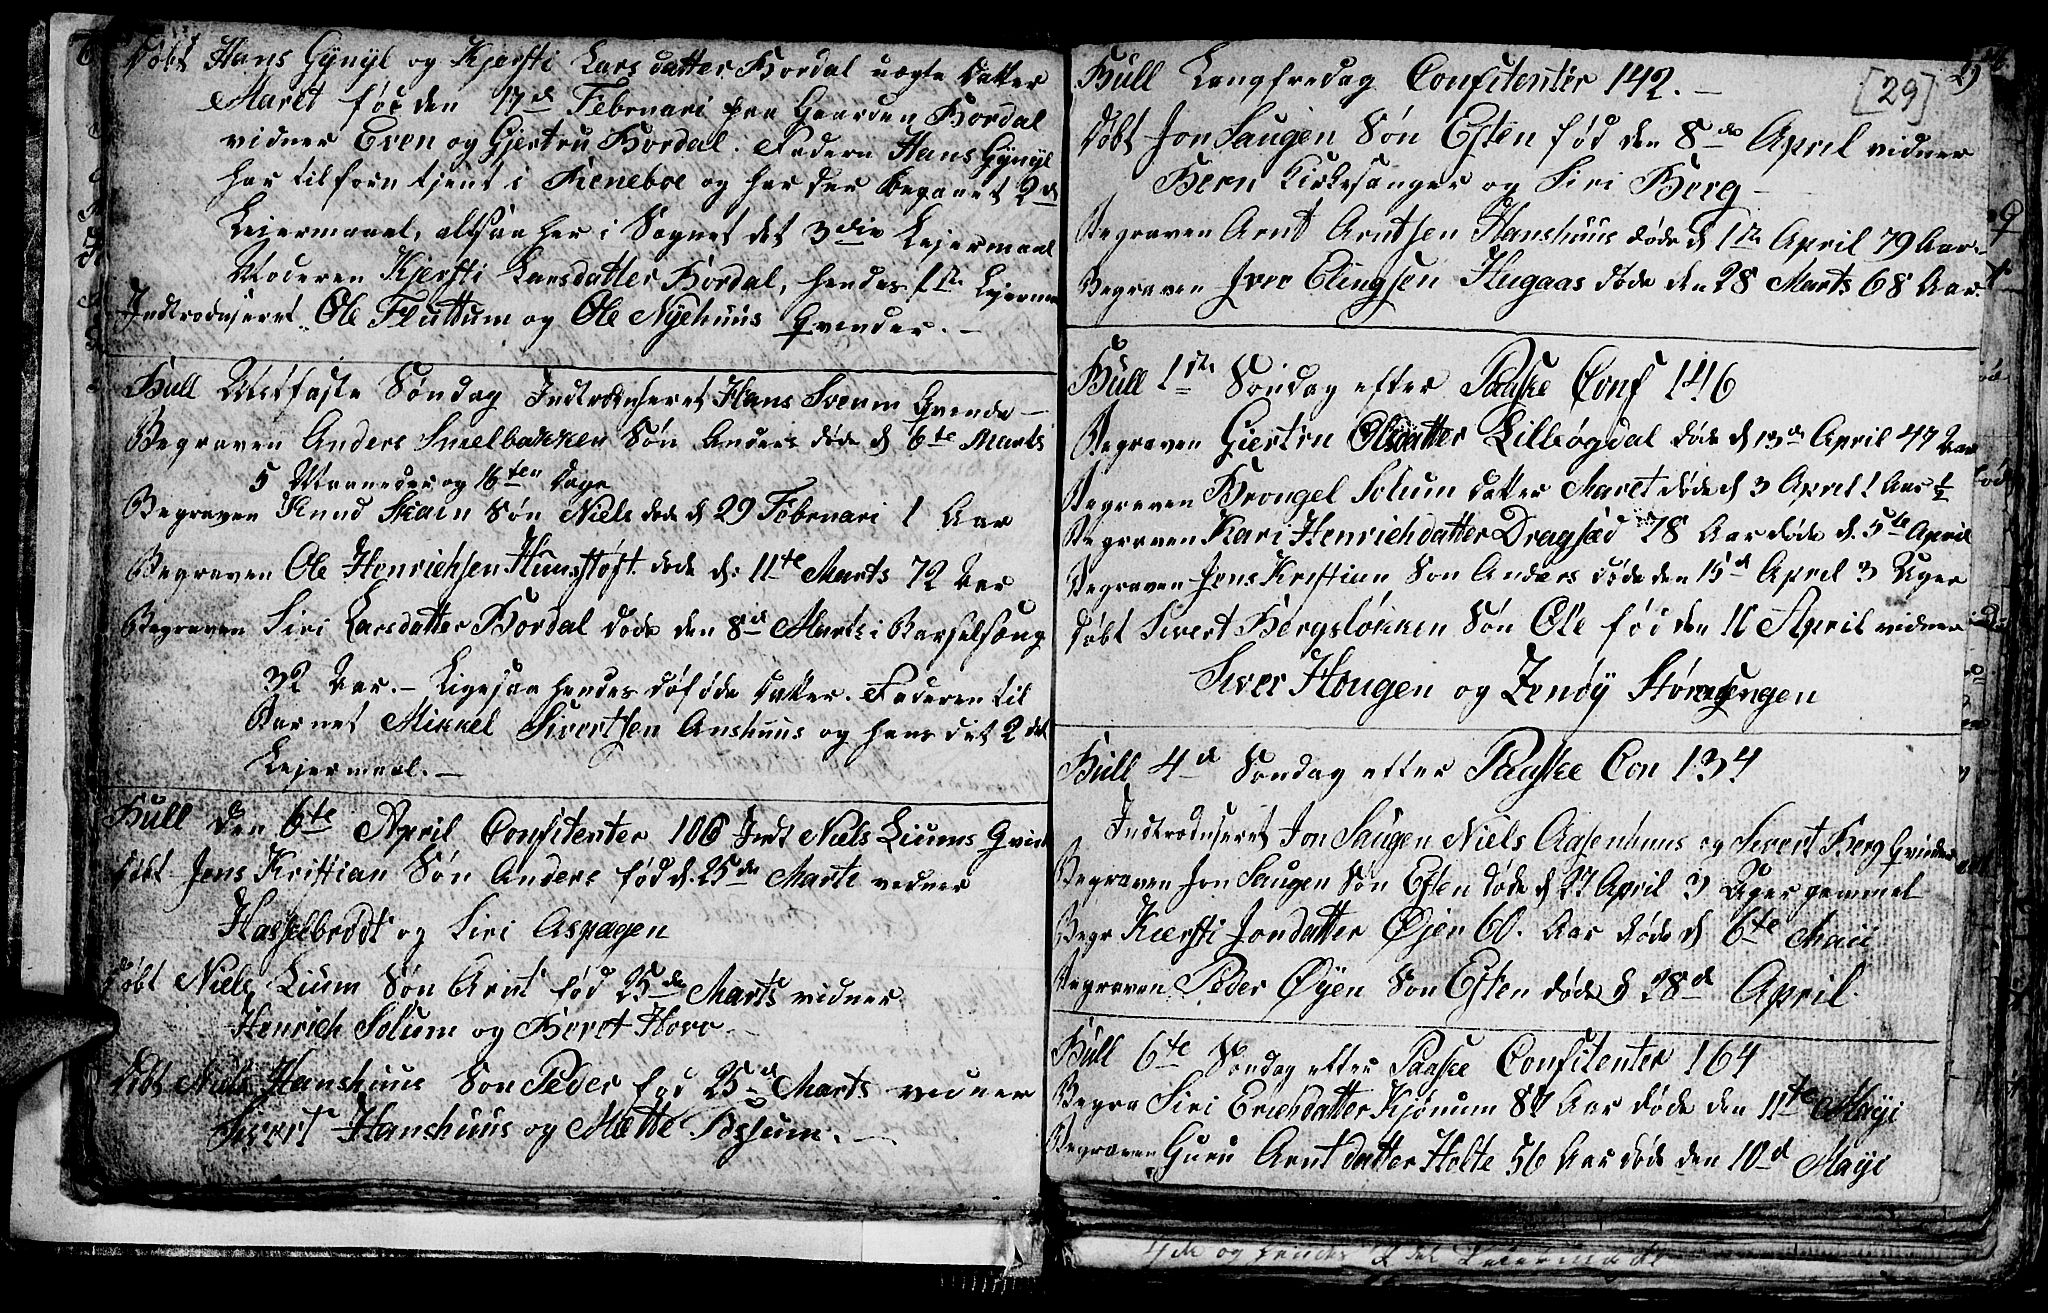 Døbt Hans Gynyl og Kjersti Lars datter Bordal uægte Datter
Maret fød den 17d Februari paa Gaarden Bordal
vidner Even og Gjertru Bordal. Faderen Hans Gynyl
har tilforn tjent i Reneboe og har der begaaet 2d
Lejermaal, altsaa her i Sognet det 3die Lejermaal
Moderen Kjersti Larsdatter Bordal, hendes 1ste Lejermaal
Indtroduseret Ole Fluttum og Ole Nyehuus Qvinder. -
Bull Midfaste Søndag Indtroduseret Hans Sveum Qvinde -
Begraven Anders Smelbakken Søn Anders døde d 6te Marts
5 Maaneder og 16ten Dage
Begraven Knud Skain Søn Niels døde d 29 Februari 1 Aar
Begraven Ole Henrichsen Hunstoft døde d: 11te Marts 72 Aar
Begraven Siri Larsdatter Bordal døde den 8d Marts i Barselsæng
32 Aar. - Ligesaa hendes døføde Datter. Faderen til
Barnet Mikkel Sivertsen Anshuus og hans det 2det
Lejermaal. -
Bull den 6te April Confitenter 106 Indt Niels Liums Qvinde
Døbt Jens Kristian Søn Anders fød d 25de Marts vidner
Hasselbrødt og Siri Aspagen
Døbt Niels Lium Søn Arnt fød 25de Marts vidner
Henrich Solum og Beret Hovr
Døbt Niels Hanshuus Søn Peder fød 25d Marts vidner
Sivert Hanshuus og Mette Possum. -
29
[29]
Bull Langfredag Confitenter 142. -
Døbt Jon Saugen Søn Esten fød den 8de April vidner
Bern Kirkesanger og Siri Berg -
Begraven Arnt Arntsen Hanshuus døde d 1ste April 79 Aar.
Begraven Iver Elingsen Hugaas døde den 28 Marts 68 Aar.
Bull 1ste Søndag efter Paaske Conf 146
Begraven Giertru Olsdatter Lilleøgdal døde d 13de April 47 Aar
Begraven Brongel Solum Datter Maret døde d 3 April 1 Aar ½
Begraven Kari Henrichdatter Dragsød 78 Aar døde d. 5te April
Begraven Jens Kristian Søn Anders døde den 15d April 3 Uger
Døbt Sivert Bergsløkken Søn Ole fød den 11 April vidner
Siver Hougen og Zenøy Størengen
Bull 4d Søndag efter Paaske Con 134
Indtroduseret Jon Saugen Niels Aasenhuus og Sivert Berg Qvinder
Begraven Jon Saugen Søn Esten døde d 27 April 3 Uger gammel
Begr Kiersti Jondatter Øjen 60. Aar døde d 6te Maii
Begraven Peder Øyen Søn Esten døde d 28d April.
Bull 6te Søndag efter Paaske Confitenter 164
Begra Siri Erichdatter Kjønum 87 Aar døde den 11te Mayi
Begraven Guru Arnt datter Holte 56 Aar døde den 10d Mayi
4de og hendes 2det Leiermaal